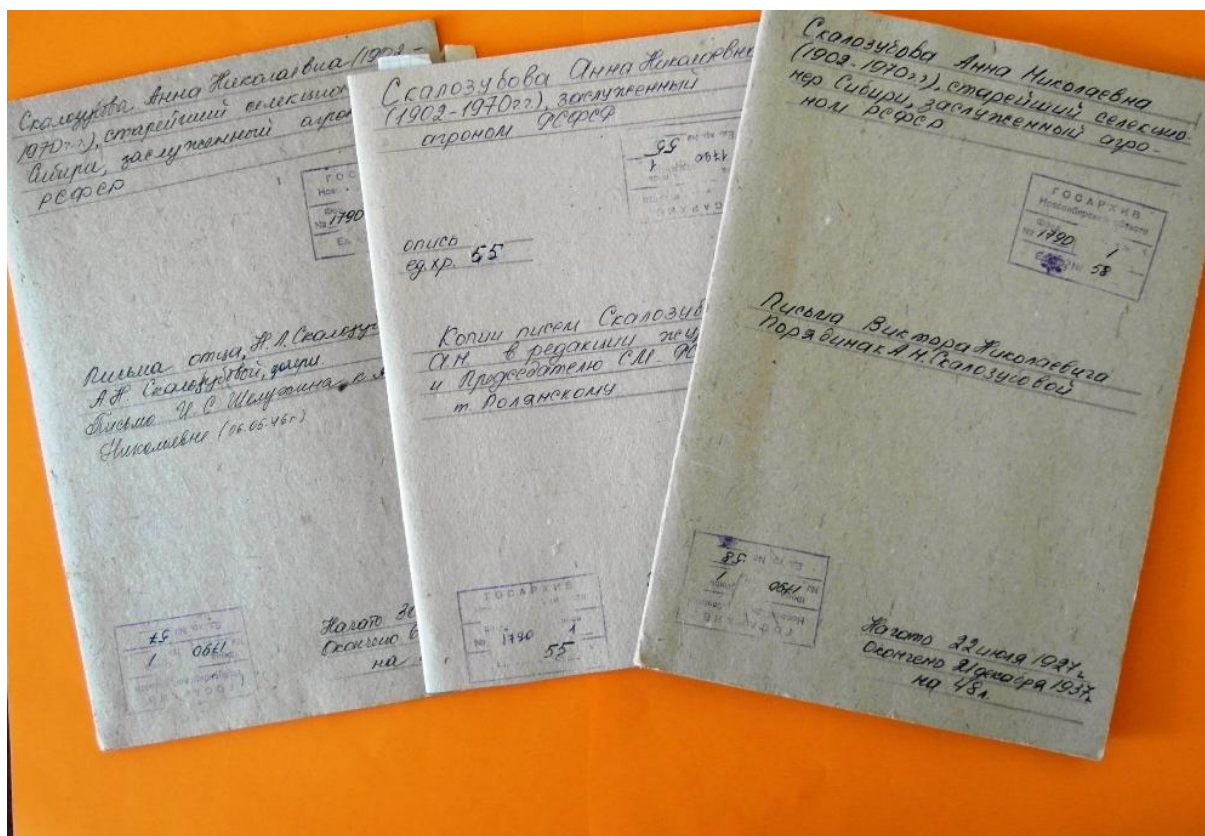 Скалозубова Анна Николаевна (1902-
1970гг), старейший селекционер
Сибири, заслуженный агроном
РСФСР
ГОС
Нов
№ 1790
Письма отца, Н.Л. Скалозубова
А.Н. Скалозубовой, дочери.
Письмо И.С. Шелухина к А
Николаевне (06.05.46г)
Начато 30
Окончено 6
на
57
1790
1
ГОСАРХИВ
Скалозубова Анна Николаевна
(1902-1970гг), заслуженный
агроном РСФСР
Ед. хр. № 55
1790 1
опись
ед.хр. 55
Копии писем Скалозуб
А.Н. в редакции жу
и Председателю СМ РС
т. Полянскому
ГОСАРХИВ
№ 1790 1
55
Скалозубова Анна Николаевна
(1902-1970гг), старейший селекцио-
нер Сибири, заслуженный агро-
ном РСФСР
ГОСАРХИВ
Новосибирской области
№ 1790 1
58
Письма Виктора Николаевича
Порядина к А.Н. Скалозубовой
Ед. хр. № 58
№ 1790 1
ГОСАРХИВ
Начато 22 июля 1927г.
Окончено 21 декабря 1937г.
на 48л.